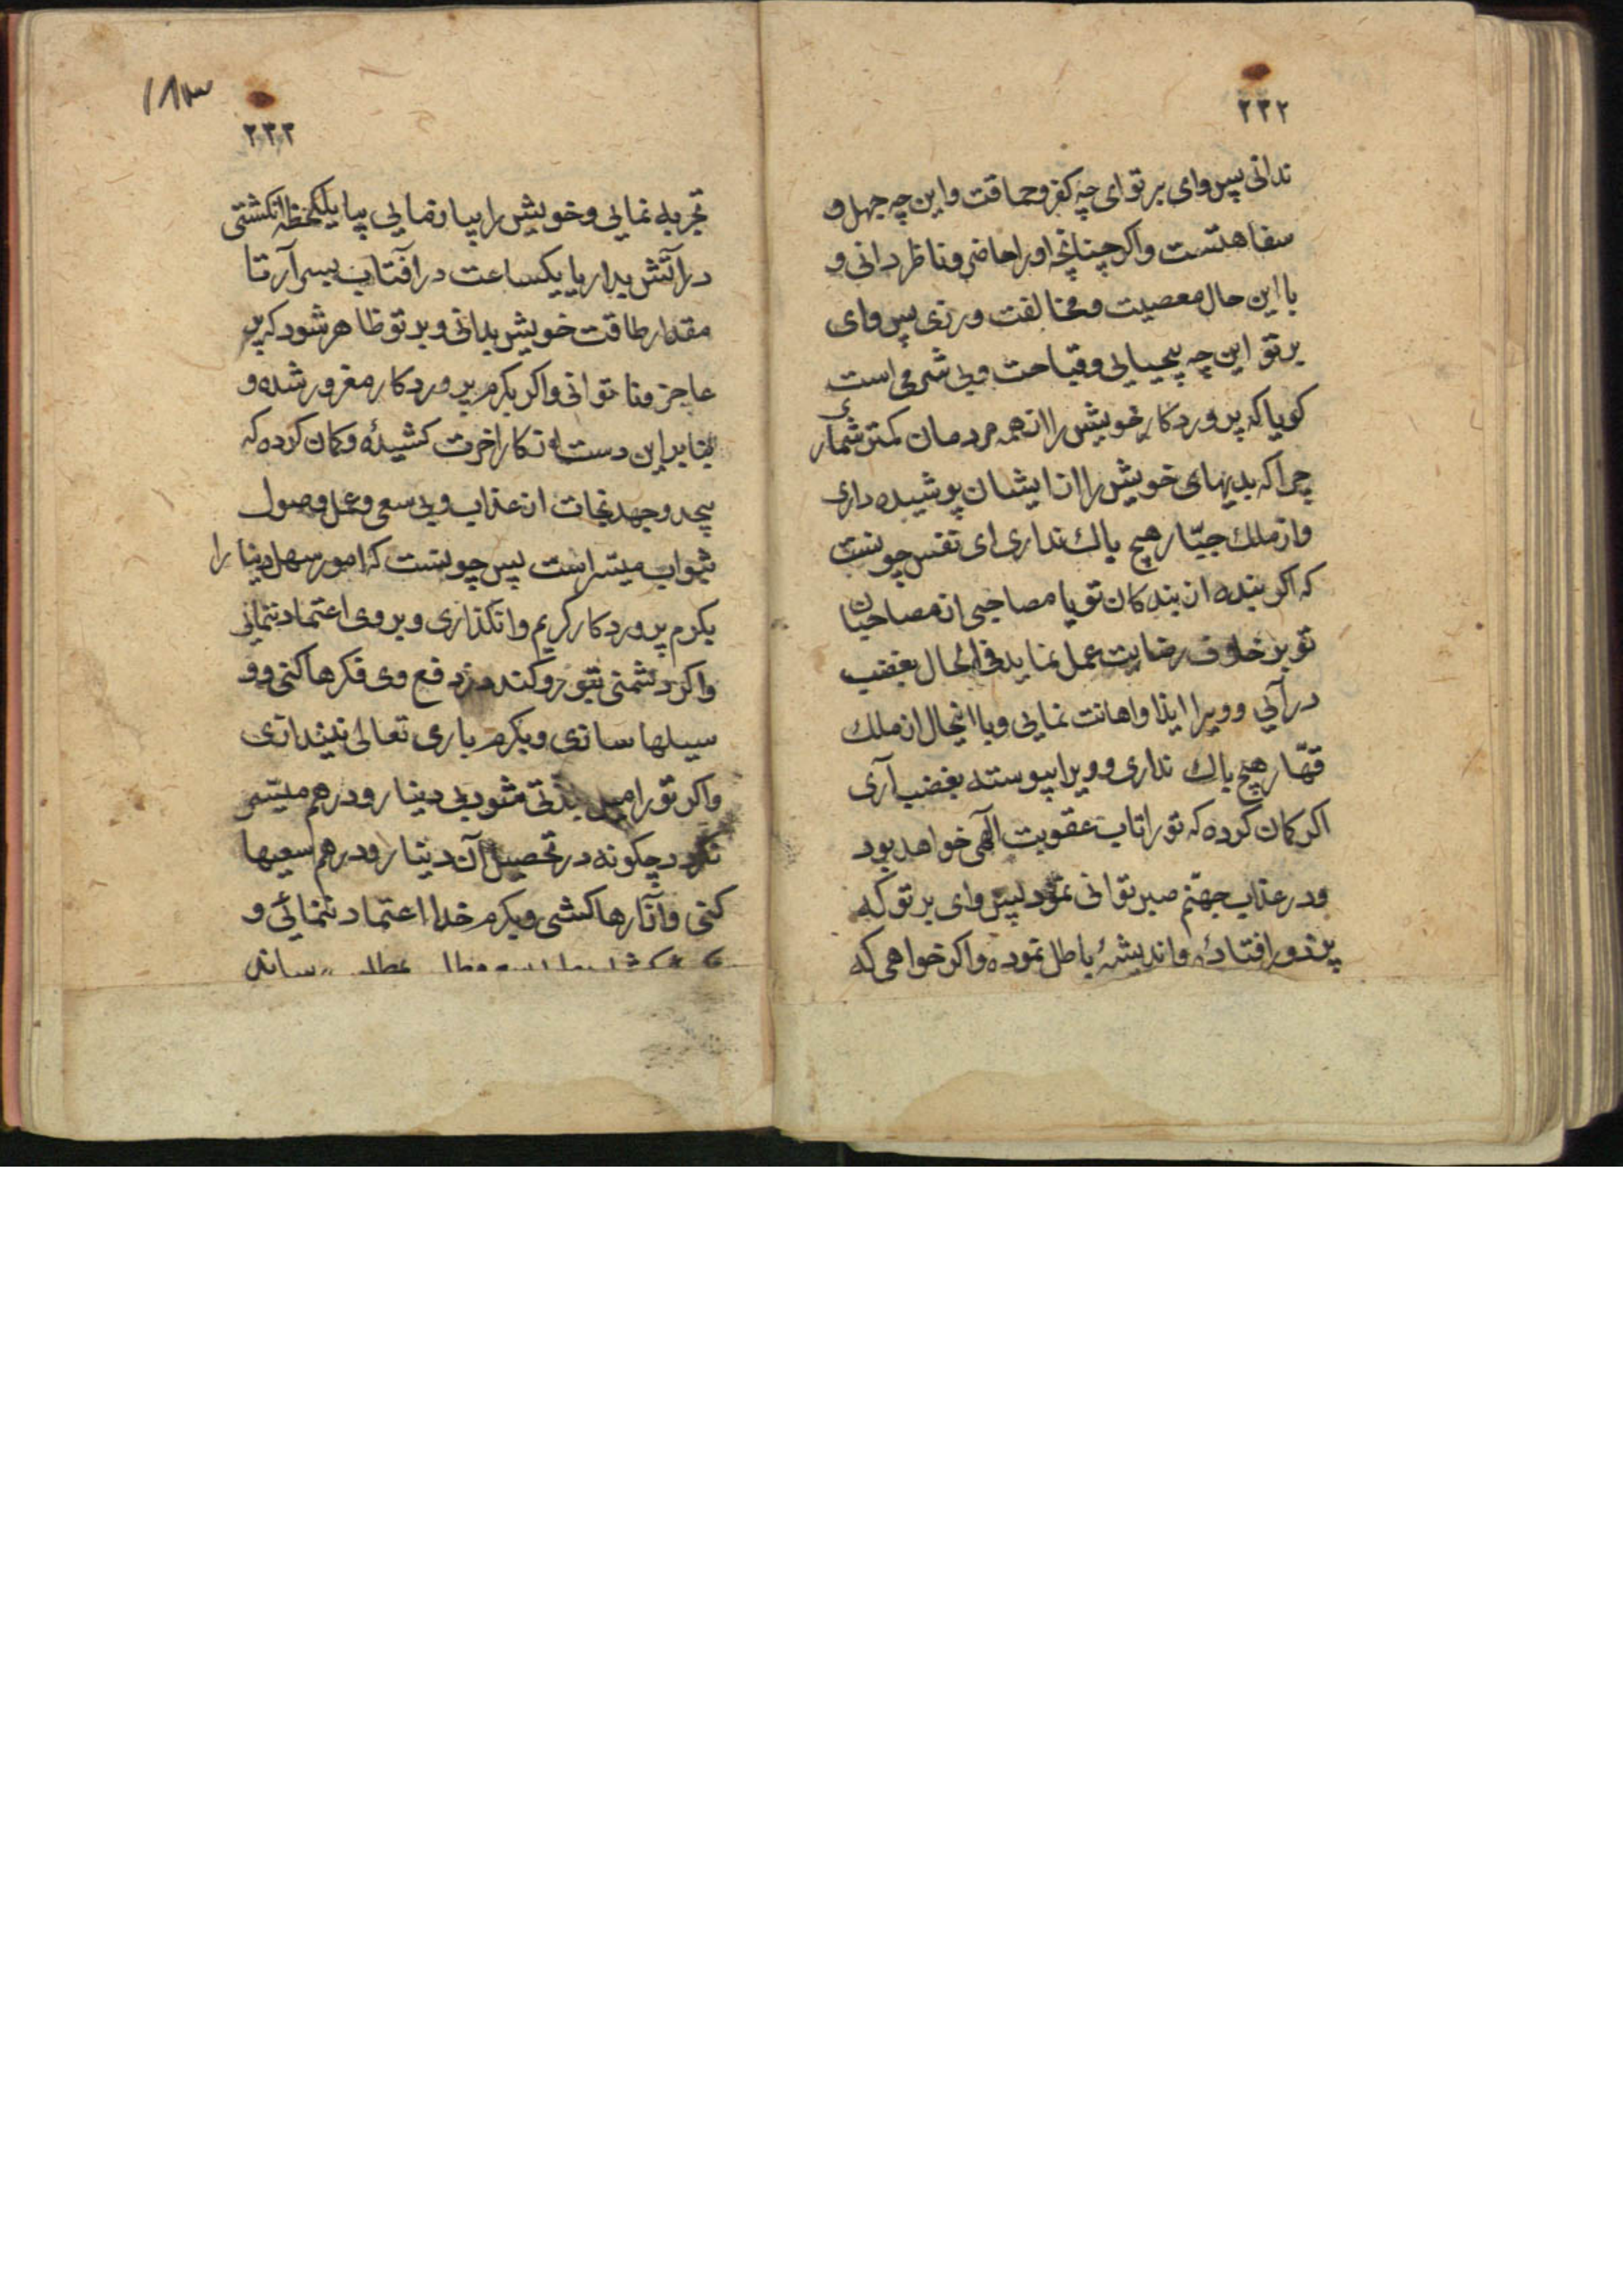 ۲۳۲
ندانی پس وای بر تو ای چه کفر و حماقت و این چه جهل و
سفاهتست و اکر چنانچه او را حاضر و ناظر دانی و
با این حال معصیت و مخالفت ورزی پس وای
بر تو این چه بیحیایی و قباحت و بی شرمی است
کویا که پروردکار خویش را از همه مردمان کمتر شماری
چرا که بدیهای خویش را از ایشان پوشیده داری
و از ملک جبّار هیچ باک نداری ای نفس چونست
که اکر بنده از بندکان تو یا مصاحبی از مصاحبان
تو بر خلاف رضایت عمل نماید فی الحال بغضب
درآیی و ویرا ایذا و اهانت نمایی و با اینحال از ملک
قهّار هیچ باک نداری و ویرا پیوسته بغضب آری
اکر کمان کرده که تو را تاب عقوبت آلهی خواهد بود
و در عذاب جهنّم صبر توانی نمود پس وای بر تو که
پر دور افتادهٔ و اندیشهٔ باطل نموده و اکر خواهی که
۱۸۳
۲۳۳
تجربه نمایی و خویش را بیازمایی بیا یکلحظه انکشتی
در آتش بدار یا یکساعت در آفتاب بسر آر تا
مقدار طاقت خویش بدانی و بر تو ظاهر شود که پر
عاجز و ناتوانی و اکر بکرم پروردکار مغرور شده و
بنا بر این دست از کار اخرت کشیدهٔ و کمان کرده که
بیجد و جهد نجات از عذاب و بی سعی و عمل وصول
ثواب میسّر است پس چونست که امور سهل دنیا را
بکرم پروردکار کریم وانکذاری و بر وی اعتماد ننمائی
و اکر دشمنی بتو رو کند در دفع وی فکرها کنی و و
سیلها سازی و بکرم باری تعالی نیندازی
و اکر تو را میل بذتی شود بی دینار و درهم میسّر
نکردد چکونه در تحصیل آن دینار و درهم سعیها
کنی و آزارها کشی و بکرم خدا اعتماد ننمائی و